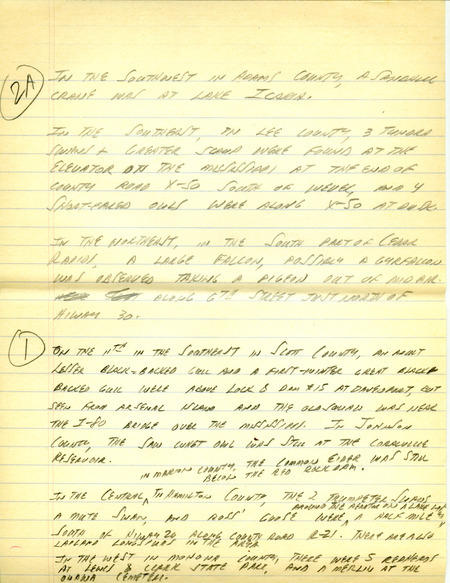 2A
IN THE SOUTHWEST IN ADAMS COUNTY, A SANDHILL
CRANE WAS AT LAKE ICARIA.
IN THE SOUTHEAST, IN LEE COUNTY, 3 TUNDRA
SWANS & GREATER SCAUP WERE FOUND AT THE
ELEVATOR ON THE MISSISSIPPI AT THE END OF
COUNTY ROAD X-50 SOUTH OF WEVER, AND 4
SHORT-EARED OWLS WERE ALONG X-50 AT DUSK.
IN THE NORTHEAST, IN THE SOUTH PART OF CEDAR
RAPIDS, A LARGE FALCON, POSSIBLY A GYRFALCON
WAS OBSERVED TAKING A PIGEON OUT OF MID AIR
ALONG 6TH STREET JUST NORTH OF
HIWAY 30.
1
ON THE 11TH IN THE SOUTHEAST IN SCOTT COUNTY, AN ADULT
LESSER BLACK-BACKED GULL AND A FIRST-WINTER GREAT BLACK
BACKED GULL WERE ABOVE LOCK & DAM #15 AT DAVENPORT, BUT
SEEN FROM ARSENAL ISLAND AND THE OLDSQUAW WAS NEAR
THE I-80 BRIDGE OVER THE MISSISSIPPI. IN JOHNSON
COUNTY, THE SAW WHET OWL WAS STILL AT THE CORALVILLE
RESERVOIR.
IN MARION COUNTY, THE COMMON EIDER WAS STILL
BELOW THE RED ROCK DAM.
IN THE CENTRAL, IN HAMILTON COUNTY, THE 2 TRUMPETER SWANS
AROUND THE AERATOR ON A LAKE
A MUTE SWAN, AND ROSS' GOOSE WERE A HALF MILE
SOUTH OF HIWAY 20 ALONG COUNTY ROAD R-21. THERE ARE ALSO
LAPLAND LONGSPURS IN THE AREA.
IN THE WEST IN MONONA COUNTY, THERE WERE 5 REDHEADS
AT LEWIS & CLARK STATE PARK, AND A MERLIN AT THE
ONAWA CEMETERY.